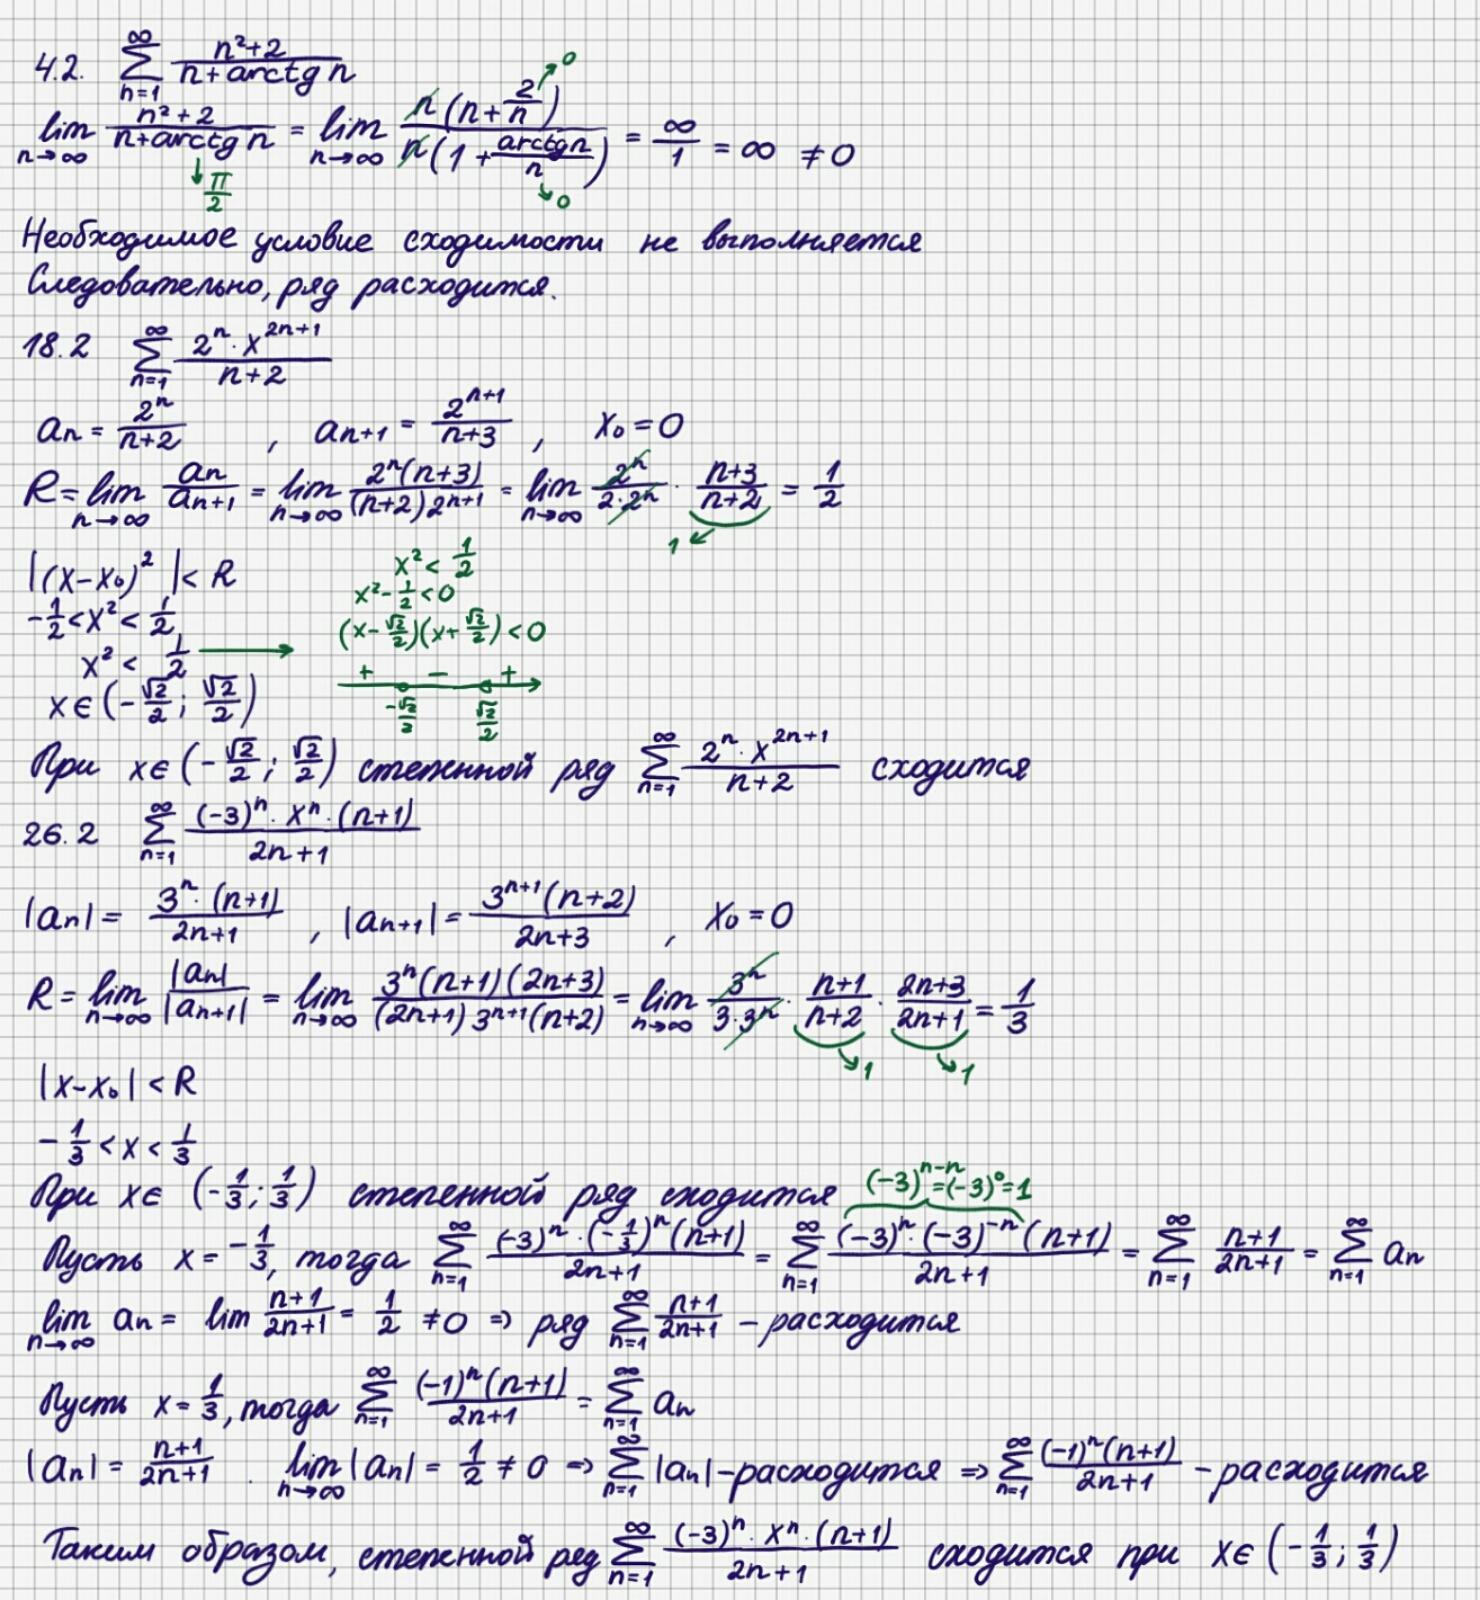 4.2. ∑_{n=1}^{∞} (n²+2)/(n+arctg n)
lim_{n→∞} (n²+2)/(n+arctg n) = lim_{n→∞} n(n+2/n)/(n(1+arctg n/n)) = ∞/1 = ∞ ≠ 0
→ π/2 → 0 → 0
Необходимое условие сходимости не выполняется
Следовательно, ряд расходится.
18.2 ∑_{n=1}^{∞} (2ⁿ · x^{2n+1})/(n+2)
aₙ = 2ⁿ/(n+2) , aₙ₊₁ = 2^{n+1}/(n+3) , x₀ = 0
R = lim_{n→∞} aₙ/aₙ₊₁ = lim_{n→∞} 2ⁿ(n+3)/((n+2)2^{n+1}) = lim_{n→∞} 2ⁿ/(2·2ⁿ) · (n+3)/(n+2) = 1/2
1
|(x-x₀)²| < R
-1/2 < x² < 1/2
x² < 1/2 →
x ∈ (-√2/2; √2/2)
x² < 1/2
x² - 1/2 < 0
(x-√2/2)(x+√2/2) < 0
+ - +
-√2/2 √2/2
При x∈(-√2/2; √2/2) степенной ряд ∑_{n=1}^{∞} (2ⁿ · x^{2n+1})/(n+2) сходится
26.2 ∑_{n=1}^{∞} ((-3)ⁿ · xⁿ · (n+1))/(2n+1)
|aₙ| = 3ⁿ·(n+1)/(2n+1) , |aₙ₊₁| = 3^{n+1}(n+2)/(2n+3) , x₀ = 0
R = lim_{n→∞} |aₙ|/|aₙ₊₁| = lim_{n→∞} 3ⁿ(n+1)(2n+3)/((2n+1)3^{n+1}(n+2)) = lim_{n→∞} 3ⁿ/(3·3ⁿ) · (n+1)/(n+2) · (2n+3)/(2n+1) = 1/3
→1 →1
|x-x₀| < R
-1/3 < x < 1/3
При x∈ (-1/3; 1/3) степенной ряд сходится
(-3)^{n-n} = (-3)⁰ = 1
Пусть x = -1/3, тогда ∑_{n=1}^{∞} ((-3)ⁿ · (-1/3)ⁿ(n+1))/(2n+1) = ∑_{n=1}^{∞} ((-3)ⁿ·(-3)^{-n}(n+1))/(2n+1) = ∑_{n=1}^{∞} (n+1)/(2n+1) = ∑_{n=1}^{∞} aₙ
lim_{n→∞} aₙ = lim (n+1)/(2n+1) = 1/2 ≠ 0 ⇒ ряд ∑_{n=1}^{∞} (n+1)/(2n+1) - расходится
Пусть x = 1/3, тогда ∑_{n=1}^{∞} ((-1)ⁿ(n+1))/(2n+1) = ∑_{n=1}^{∞} aₙ
|aₙ| = (n+1)/(2n+1) . lim_{n→∞} |aₙ| = 1/2 ≠ 0 ⇒ ∑_{n=1}^{∞} |aₙ| - расходится ⇒ ∑_{n=1}^{∞} ((-1)ⁿ(n+1))/(2n+1) - расходится
Таким образом, степенной ряд ∑_{n=1}^{∞} ((-3)ⁿ · xⁿ · (n+1))/(2n+1) сходится при x∈ (-1/3; 1/3)